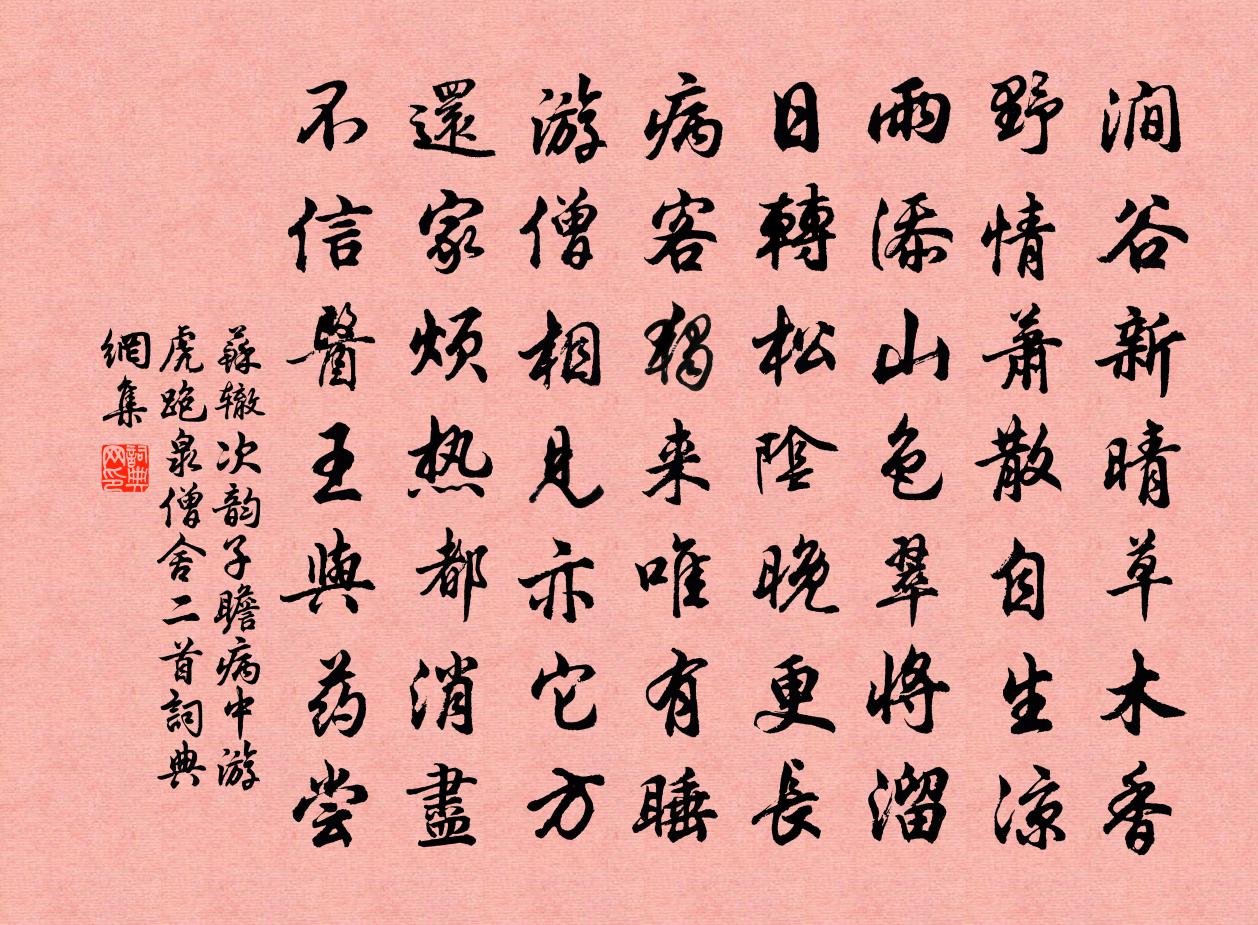 澗谷新晴草木香
野情蕭散自生凉
雨添山色翠將溜
日轉松陰晚更長
病客獨来唯有睡
游僧相見亦它方
還家煩热都消盡
不信醫王與药尝
蘇辙次韵子瞻病中游
虎跑泉僧舍二首詞典
網集
詞典网印